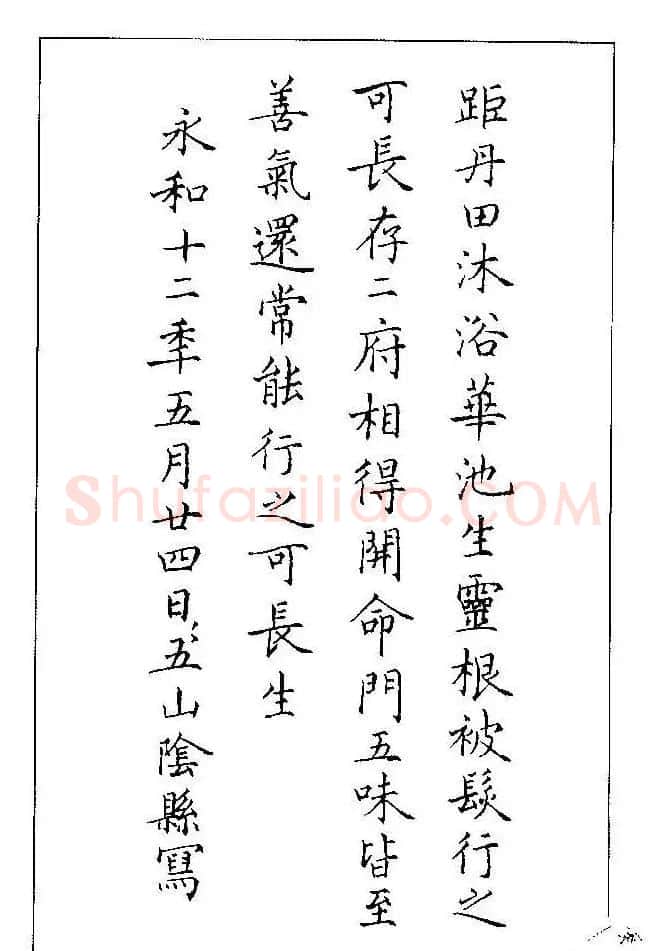 距丹田沐浴華池生靈根被髮行之
可長存二府相得開命門五味皆至
善氣還常能行之可長生
永和十二年五月廿四日五山陰縣寫
Shufaziliao.COM